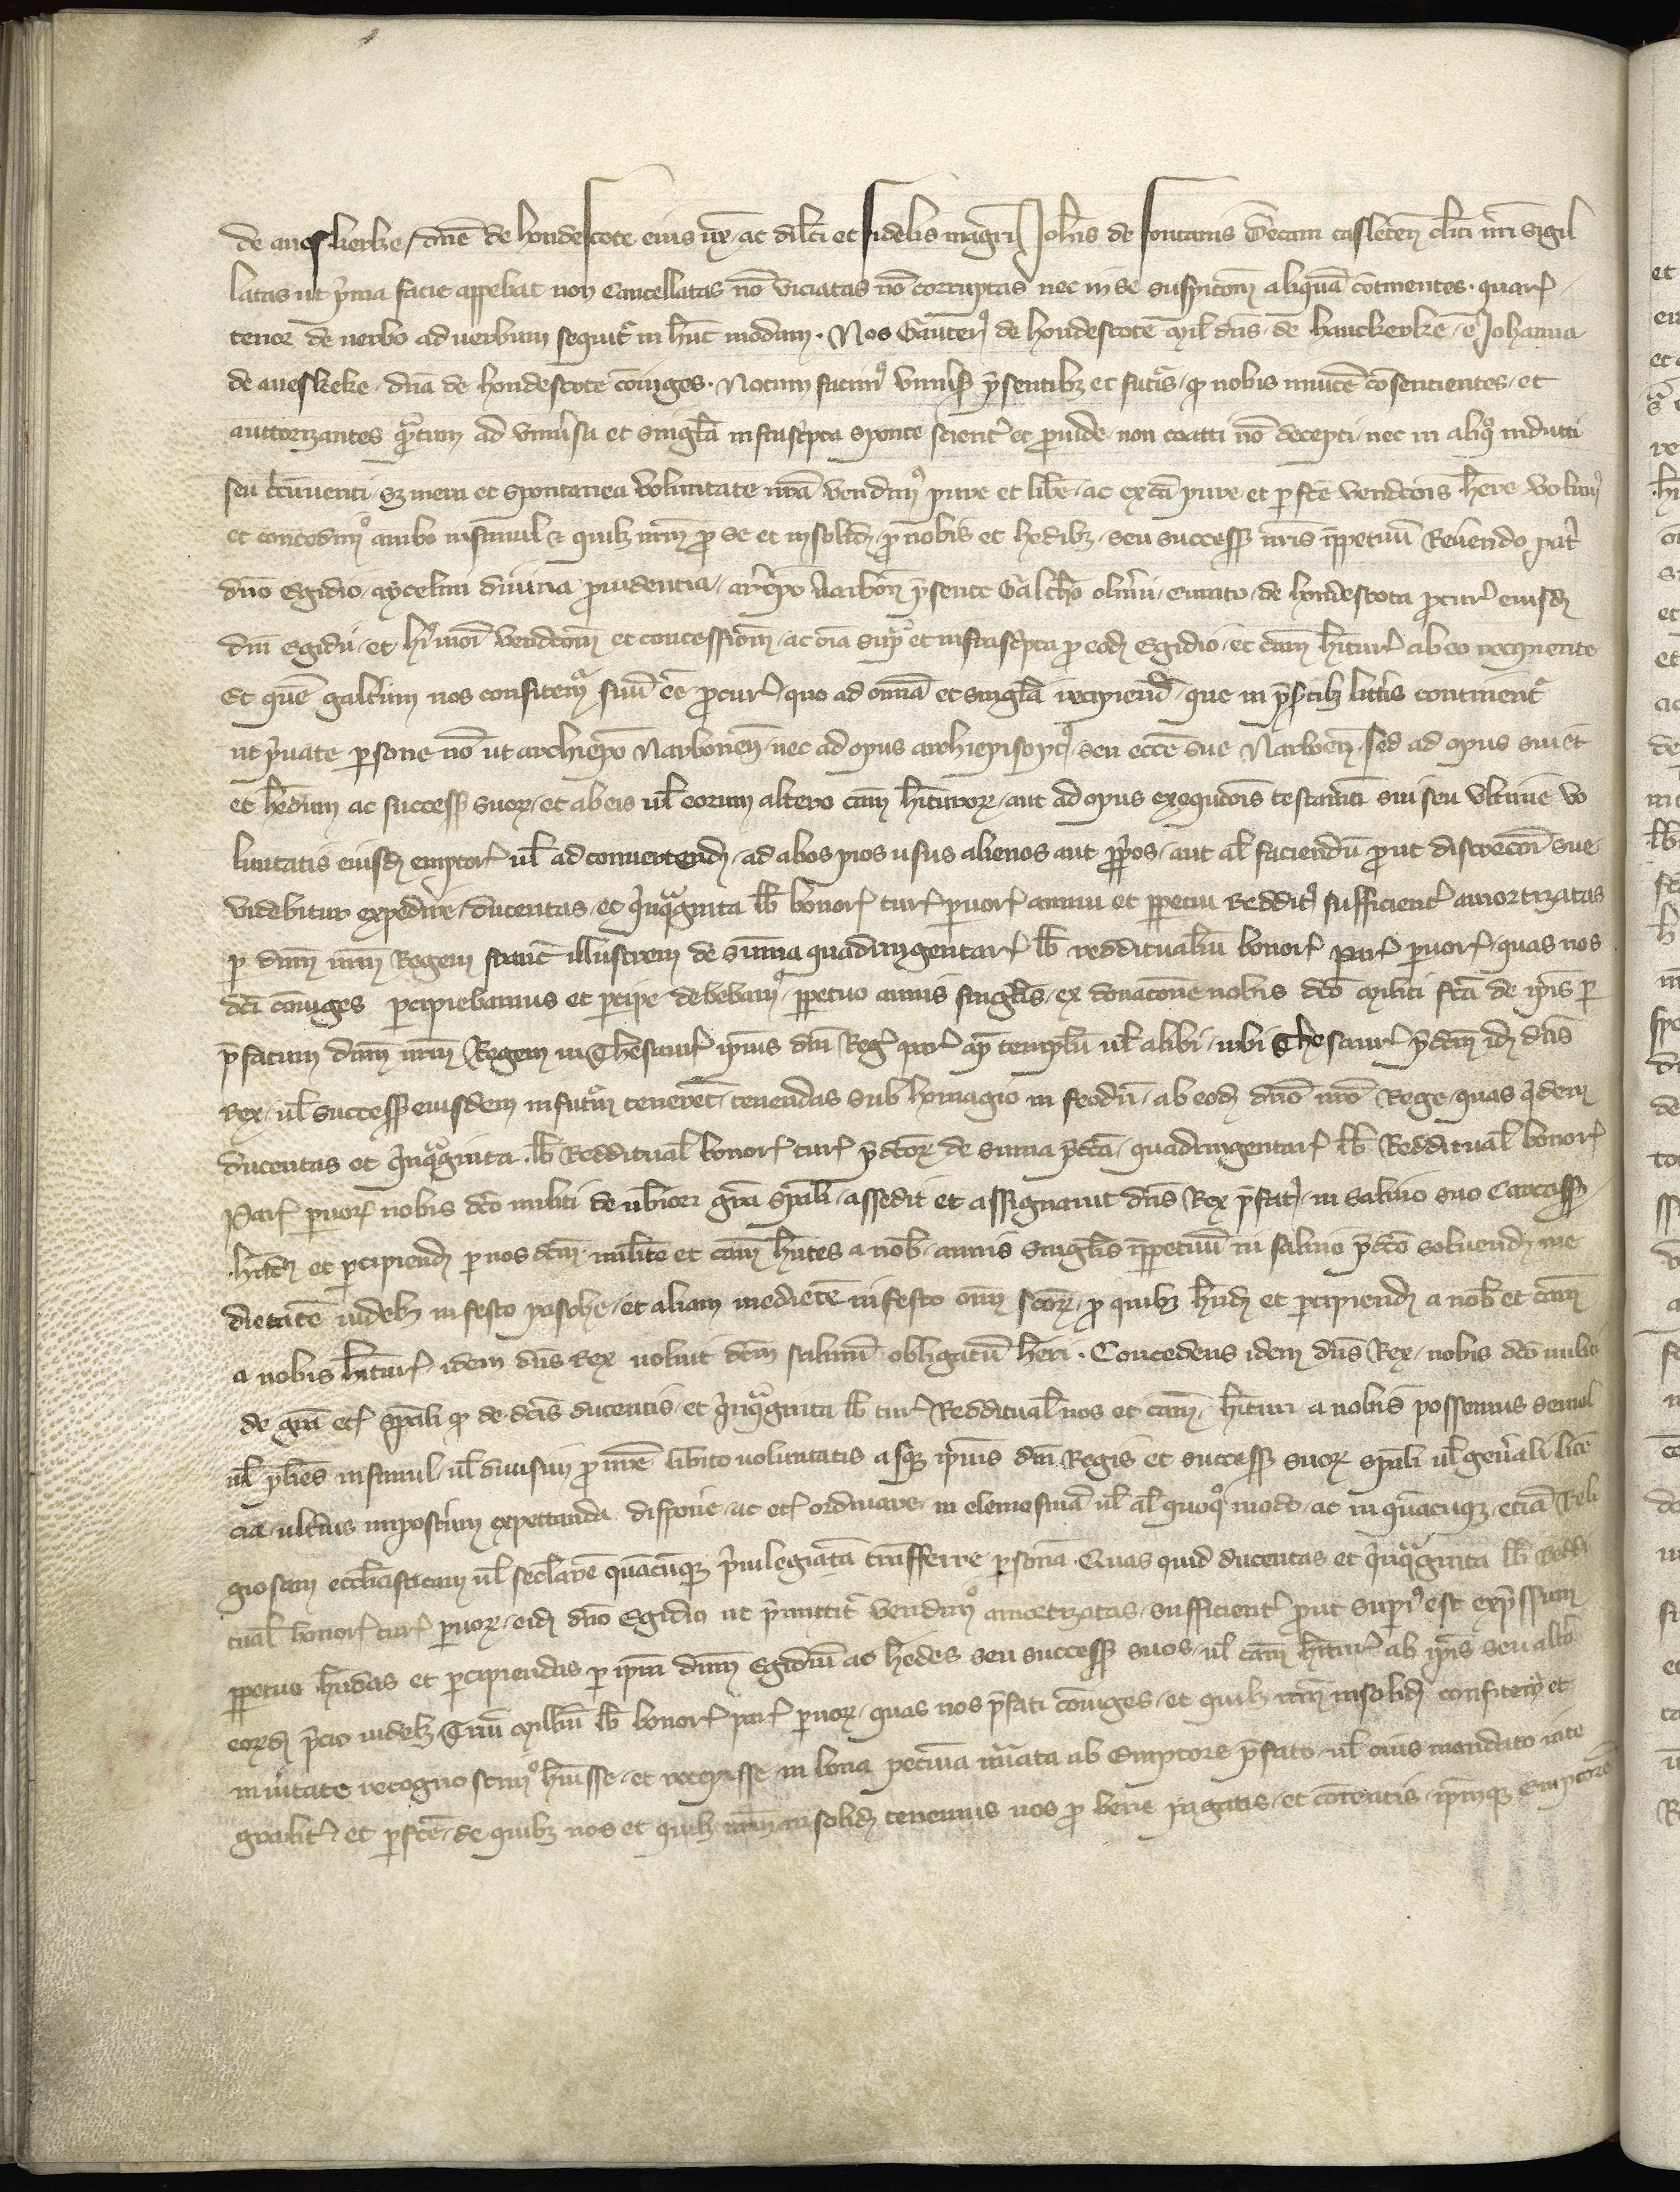 de aueskerke, dn̄e de hondescote eius ux̄, ac dil̄cti et fidelis mag̃ri Joh̄is de fontanis Decani casleten̄ cl̃ici nr̃i sigil
latas ut p̃ma facie apꝑebat non Cancellatas nō viciatas nō corruptas nec in se suspic̃onem aliquā continentes. quarꝝ
tenor de uerbo ad uerbum sequit᷑ in hūc modum. Nos Gauterꝰ de hondescote mil̃ dn̄s de hauckerke, et Johanna
de aueskeke, dn̄a de hondescote cōiuges. Notum facimꝰ vniũsis p̃sentibꝫ et futuris, qꝫ nobis inuicē cōsentientes, et
auttorizantes quãtum ad vniũsa et singl̃a infrasc̃pta sponte scient̃ et ꝓuide, non coatti nō decepti, nec in aliqº indutti
seu c̃cūuenti, sꝫ mera et spontanea voluntate nr̃a vendimꝰ pure et libe, ac ex cā pure et ꝑfc̃e vendic̃ois h̃ere volumꝰ
et concedimꝰ ambo insimul ⁊ quilibꝫ nr̃m ꝓ se et insolidꝫ, ꝓ nobis et h̃edibꝫ, seu success̃ nr̃is inꝑpetuū Reũendo patr̃i
dn̄o Egidio, aycelini diuina ꝓuidencia, arch̃iepo Narbon̄ p̃sente Galtħo olm̃i, curato, de hondescota ꝓcur̃ eiusdꝫ
dn̄i Egidii, et hꝰmōi vendic̃om̄ et concessiom̄, ac oīa sup̃ et infrasc̃pta ꝓ eodꝫ Egidio, et cām h̃itur̃ ab eo recipiente
Et quē galtũm nos confitem᷑ suū ēe ꝓcur̃, quo ad omīa et singl̃a recipiend̃, que in p̃ntibꝫ litt̃is continent᷑
ut p̃uate ꝑsone nō ut archiep̃o Narbonen̄, nec ad opus archiepiscopatꝰ, seu ecc̃e sue Narbon̄, sed ad opus sui et
et h̃edum ac success̃ suoꝝ, et ab eis ul̃ eorum altero cām h̃ituroꝝ, aut ad opus exequc̃ois testam̃ti sui seu vltime vo
luntatis eiusdꝫ emptor̃ ul̃ ad conuertendꝫ, ad alios pios usus alienos aut ꝓpos, aut al̃ faciendū ꝓut discrec̃oni sue
videbitur expedire, ducentas, et q̃nqᵃginta lb̃ bonoꝝ turꝝ ꝑuoꝝ annui et ꝑpetui Redditꝰ sufficient̃ amortizatas
ꝑ dn̄m nr̃m Regem franc̃ illustrem de sūma quadringentarꝝ lb̃ reddituali͂u bonoꝝ parꝝ ꝑuoꝝ, quas nos
dc̃i cōiuges ꝑcipiebamus et ꝑcipe debebam᷑, ꝑpetuo annis singl̃is, ex donac̃one nobis dc̃o militi fc̃a de ip̃is ꝑ
p̃fatum dn̄m nr̃m Regem in Thesaur̃ ip̃ius dn̄i Reg̃ par̃ ap̃ templū ul̃ alibi, ubi Thesaur̃ p̃dc̃m idꝫ dn̄s
Rex, ul̃ success̃ eiusdem in futur̃ teneret̃, tenendas sub homagio in feodū, ab eodꝫ dn̄o nr̃o Rege, quas q̃dem
ducentas et q̃nqᵃginta lb̃ Redditual̃ bonoꝝ turꝝ p̃dc̃oꝝ de sūma p̃dc̃a, quadringentarꝝ lb̃ Redditual̃ bonoꝝ
Parꝝ ꝑuoꝝ nobis dc̃o militi de ub̃iori grā sp̃ali, assedit et assignauit dn̄s Rex p̃fatꝰ, in salino suo Carcass̃
h̃ndꝫ et ꝑcipiendꝫ ꝑ nos dc̃m militē et cām h̃ntes a nob̃ annis singl̃is inꝑpetuū in salino p̃dc̃o soluendꝫ me
dietatē uidelꝫ in festo pasche, et aliam medietē in festo om̄ sc̃oꝝ, ꝓ quibꝫ h̃ndꝫ et ꝑcipiendꝫ a nob̃ et cām
a nobis h̃iturꝝ idem dn̄s Rex uoluit dc̃m salinū obligatū h̃eri. Concedens idem dn̄s Rex, nobis dc̃o militi
de grā etꝝ sp̃ali qꝫ de dc̃is ducentis, et q̃nqᵃginta lb̃ tur̃ Redditual̃ nos et cām, h̃ituri a nobis possemus semel
ul̃ pl̃ies insimul, ul̃ diuisim ꝓ nr̃e libito uoluntatis absqꝫ ip̃ius dn̄i Regis et success̃ suoꝝ sp̃ali ul̃ geñali licē
cia, ult̃ius impost̃um expettanda, dispone, ac etꝝ ordinare, in elemosinā ul̃ al̃ quoqº modo, ac in quācunqꝫ, etiā Reli
giosam eccl̃iasticam ul̃ secl̃arē quācunqꝫ p̃uilegiatā trā̃nsferre ꝑsonā. Quas quid̃ ducentas et q̃nqᵃginta lb̃ Reddi
tual̃ bonoꝝ turꝝ ꝑuoꝝ, eidꝫ dn̄o Egidio ut p̃mittit᷑ vendimꝰ amortizatas, sufficient̃ ꝓut supiꝰ est exp̃ssum
ꝑpetuo h̃ndas et ꝑcipiendas ꝑ ip̃m dn̄m Egidiū ac h̃edes seu success̃ suos, ul̃ cām h̃itur̃ ab ip̃is seu alt̃o
eoꝝdꝫ p̃cio uidelꝫ Triū milliū lb̃ bonoꝝ parꝝ ꝑuoꝝ, quas nos p̃fati cōiuges, et quilibꝫ nr̃m insolidꝫ confitem᷑ et
in ũitate recognoscimꝰ h̃uisse, et recepisse in bona pecūia nũata ab Emptore p̃fato, ul̃ eius mandato inte
gralit̃ et ꝑfc̃e, de quibꝫ nos et quilibꝫ nr̃m insolidꝫ tenemus nos ꝓ bene pagatis, et cōtentis, ip̃mqꝫ Emptorē